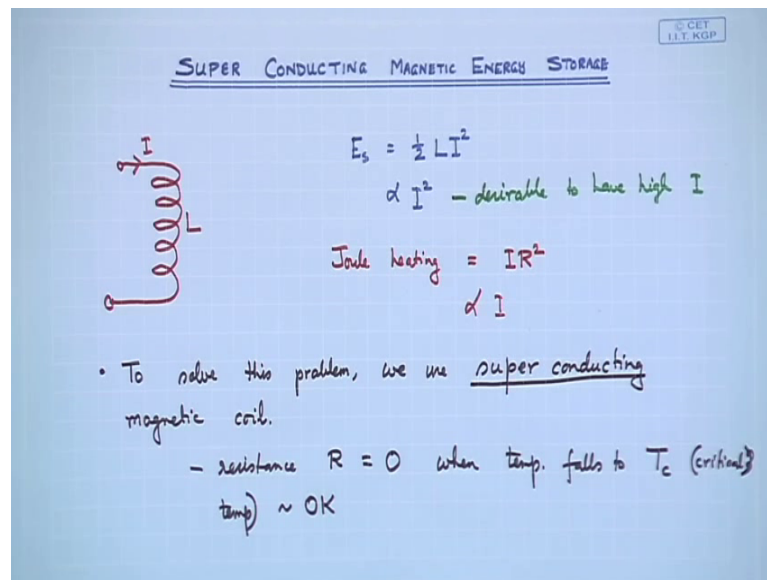 © CET
I.I.T. KGP
SUPER CONDUCTING MAGNETIC ENERGY STORAGE
I
L
Es = ½ LI²
α I² – desirable to have high I
Joule heating = IR²
α I
• To solve this problem, we use super conducting
magnetic coil.
– resistance R = 0 when temp. falls to Tc (critical
temp) ~ 0K